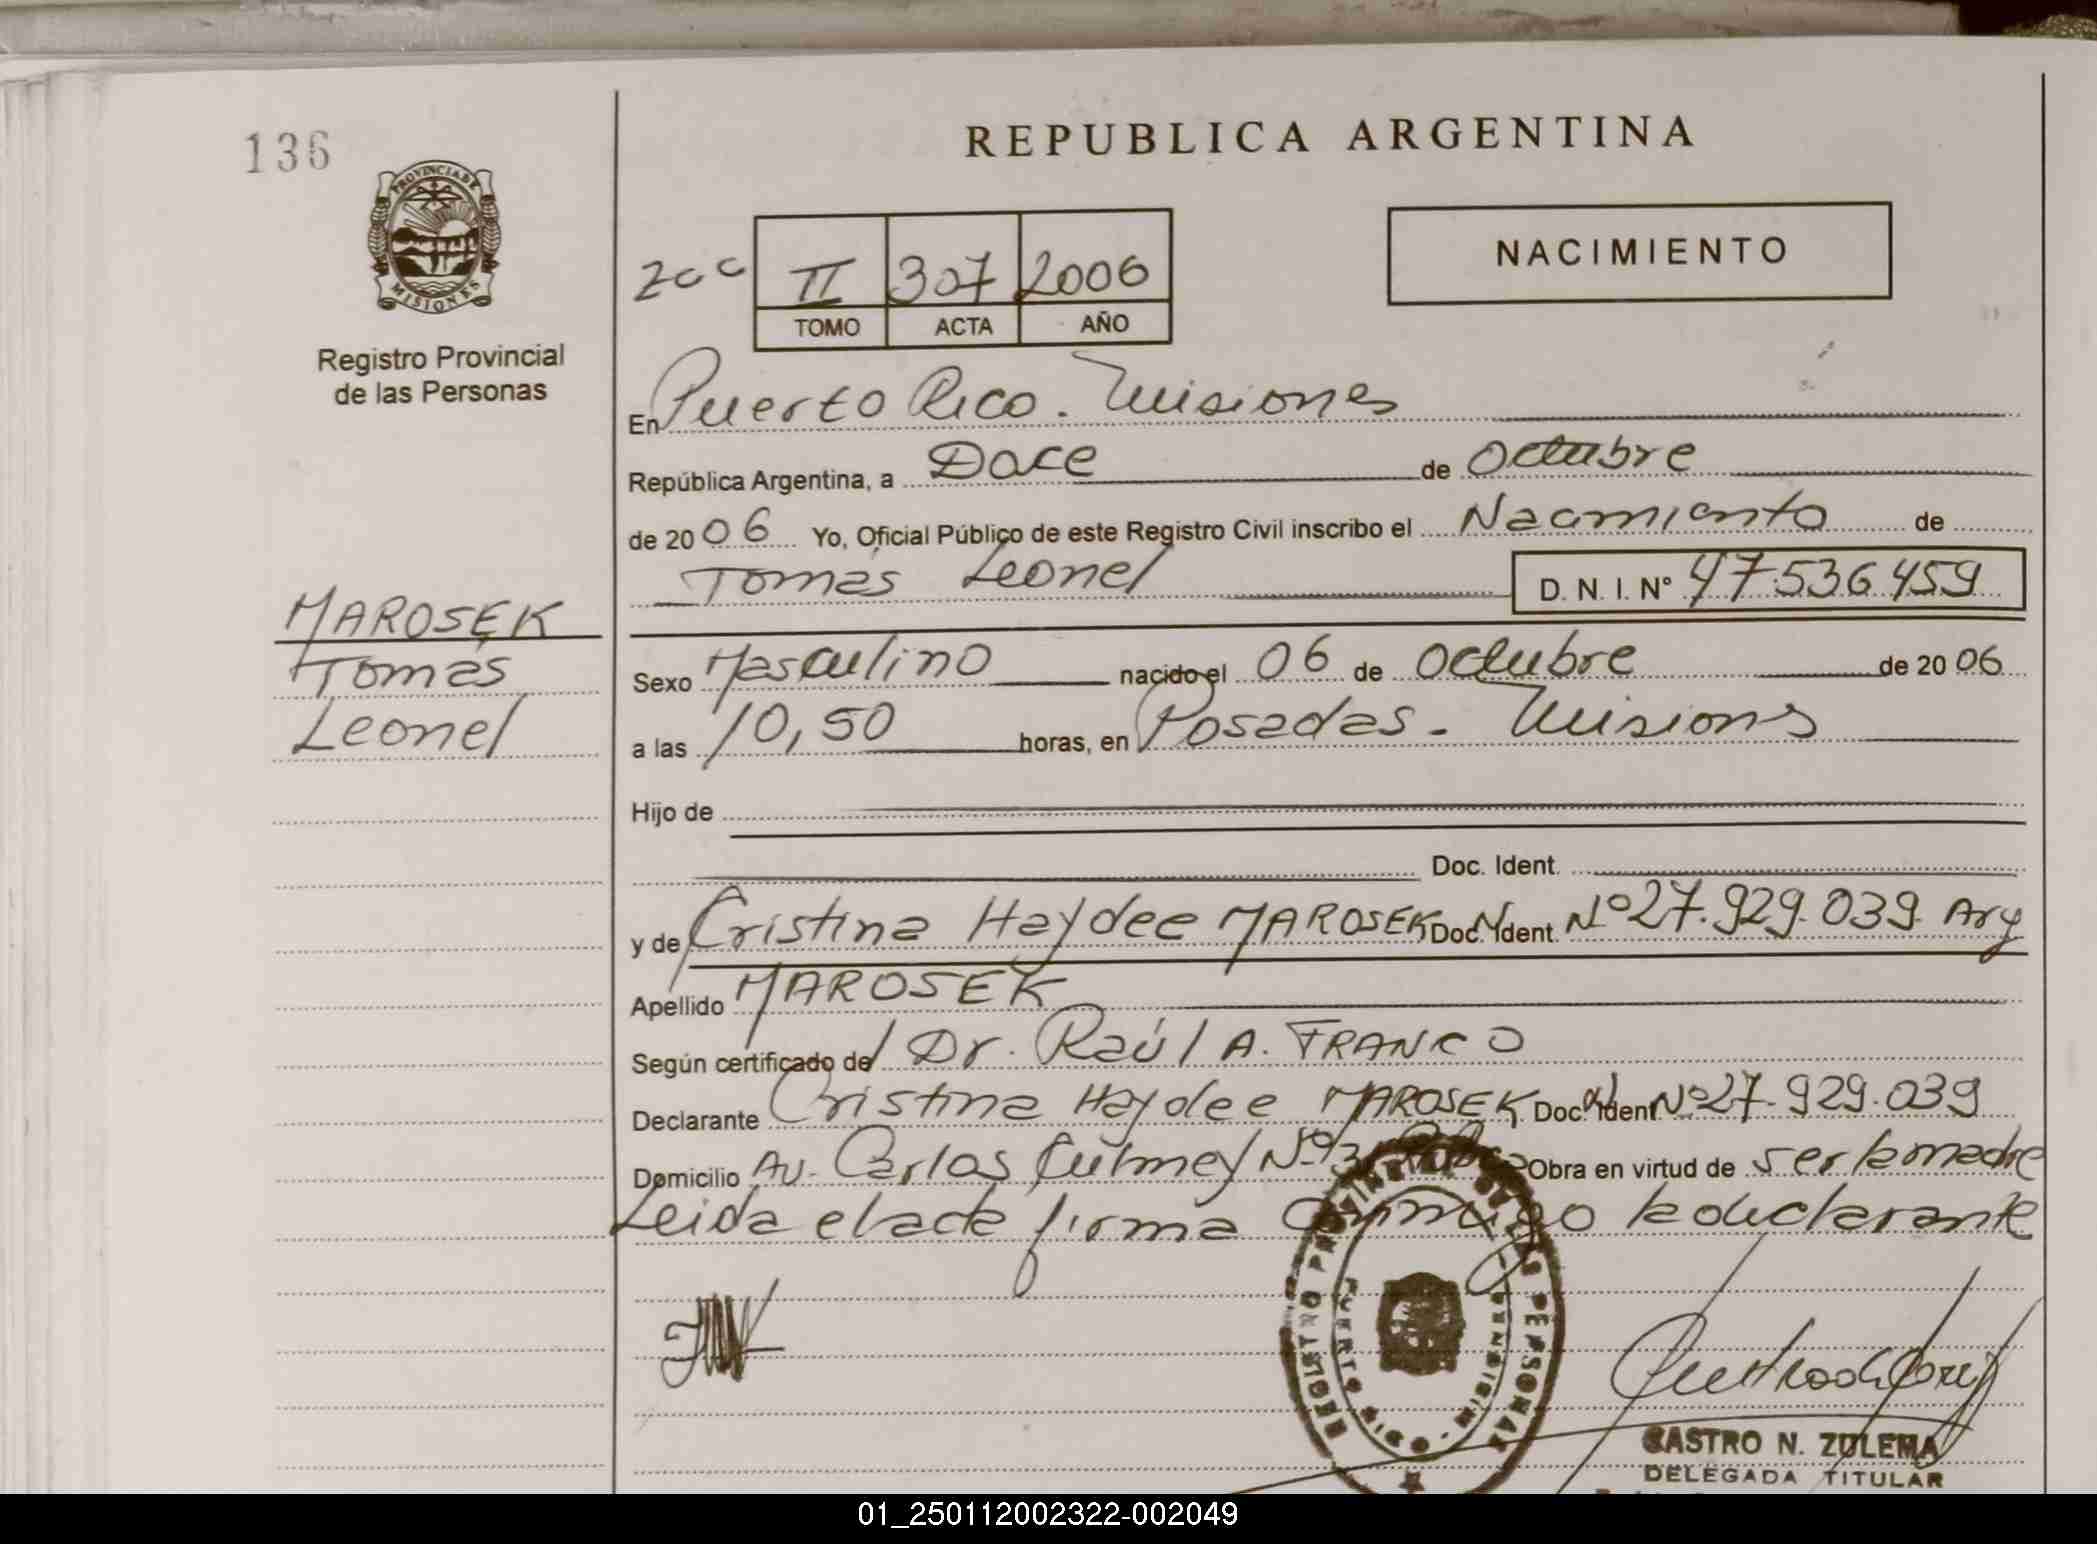 136
PROVINCIA DE
MISIONES
Registro Provincial
de las Personas
REPUBLICA ARGENTINA
NACIMIENTO
II 307 2006
TOMO ACTA AÑO
En Puerto Rico. Misiones
República Argentina, a Doce de Octubre
de 2006 Yo, Oficial Público de este Registro Civil inscribo el Nacimiento de
Tomás Leonel D. N. I. N° 47.536.459
MAROSEK
Tomás
Leonel
Sexo Masculino nacido el 06 de Octubre de 2006
a las 10,50 horas, en Posadas. Misiones
Hijo de
Doc. Ident.
y de Cristina Haydee MAROSEK Doc. Ident. N° 27.929.039 Arg
Apellido MAROSEK
Según certificado del Dr. Raúl A. FRANCO
Declarante Cristina Haydee MAROSEK Doc. Ident N° 27.929.039
Domicilio Av. Carlos Culmey N° Obra en virtud de ser la madre
Leida el acta firma conmigo la declarante
REGISTRO PROVINCIAL DE LAS PERSONAS
PUERTO RICO - MISIONES
CASTRO N. ZULEMA
DELEGADA TITULAR
01_250112002322-002049